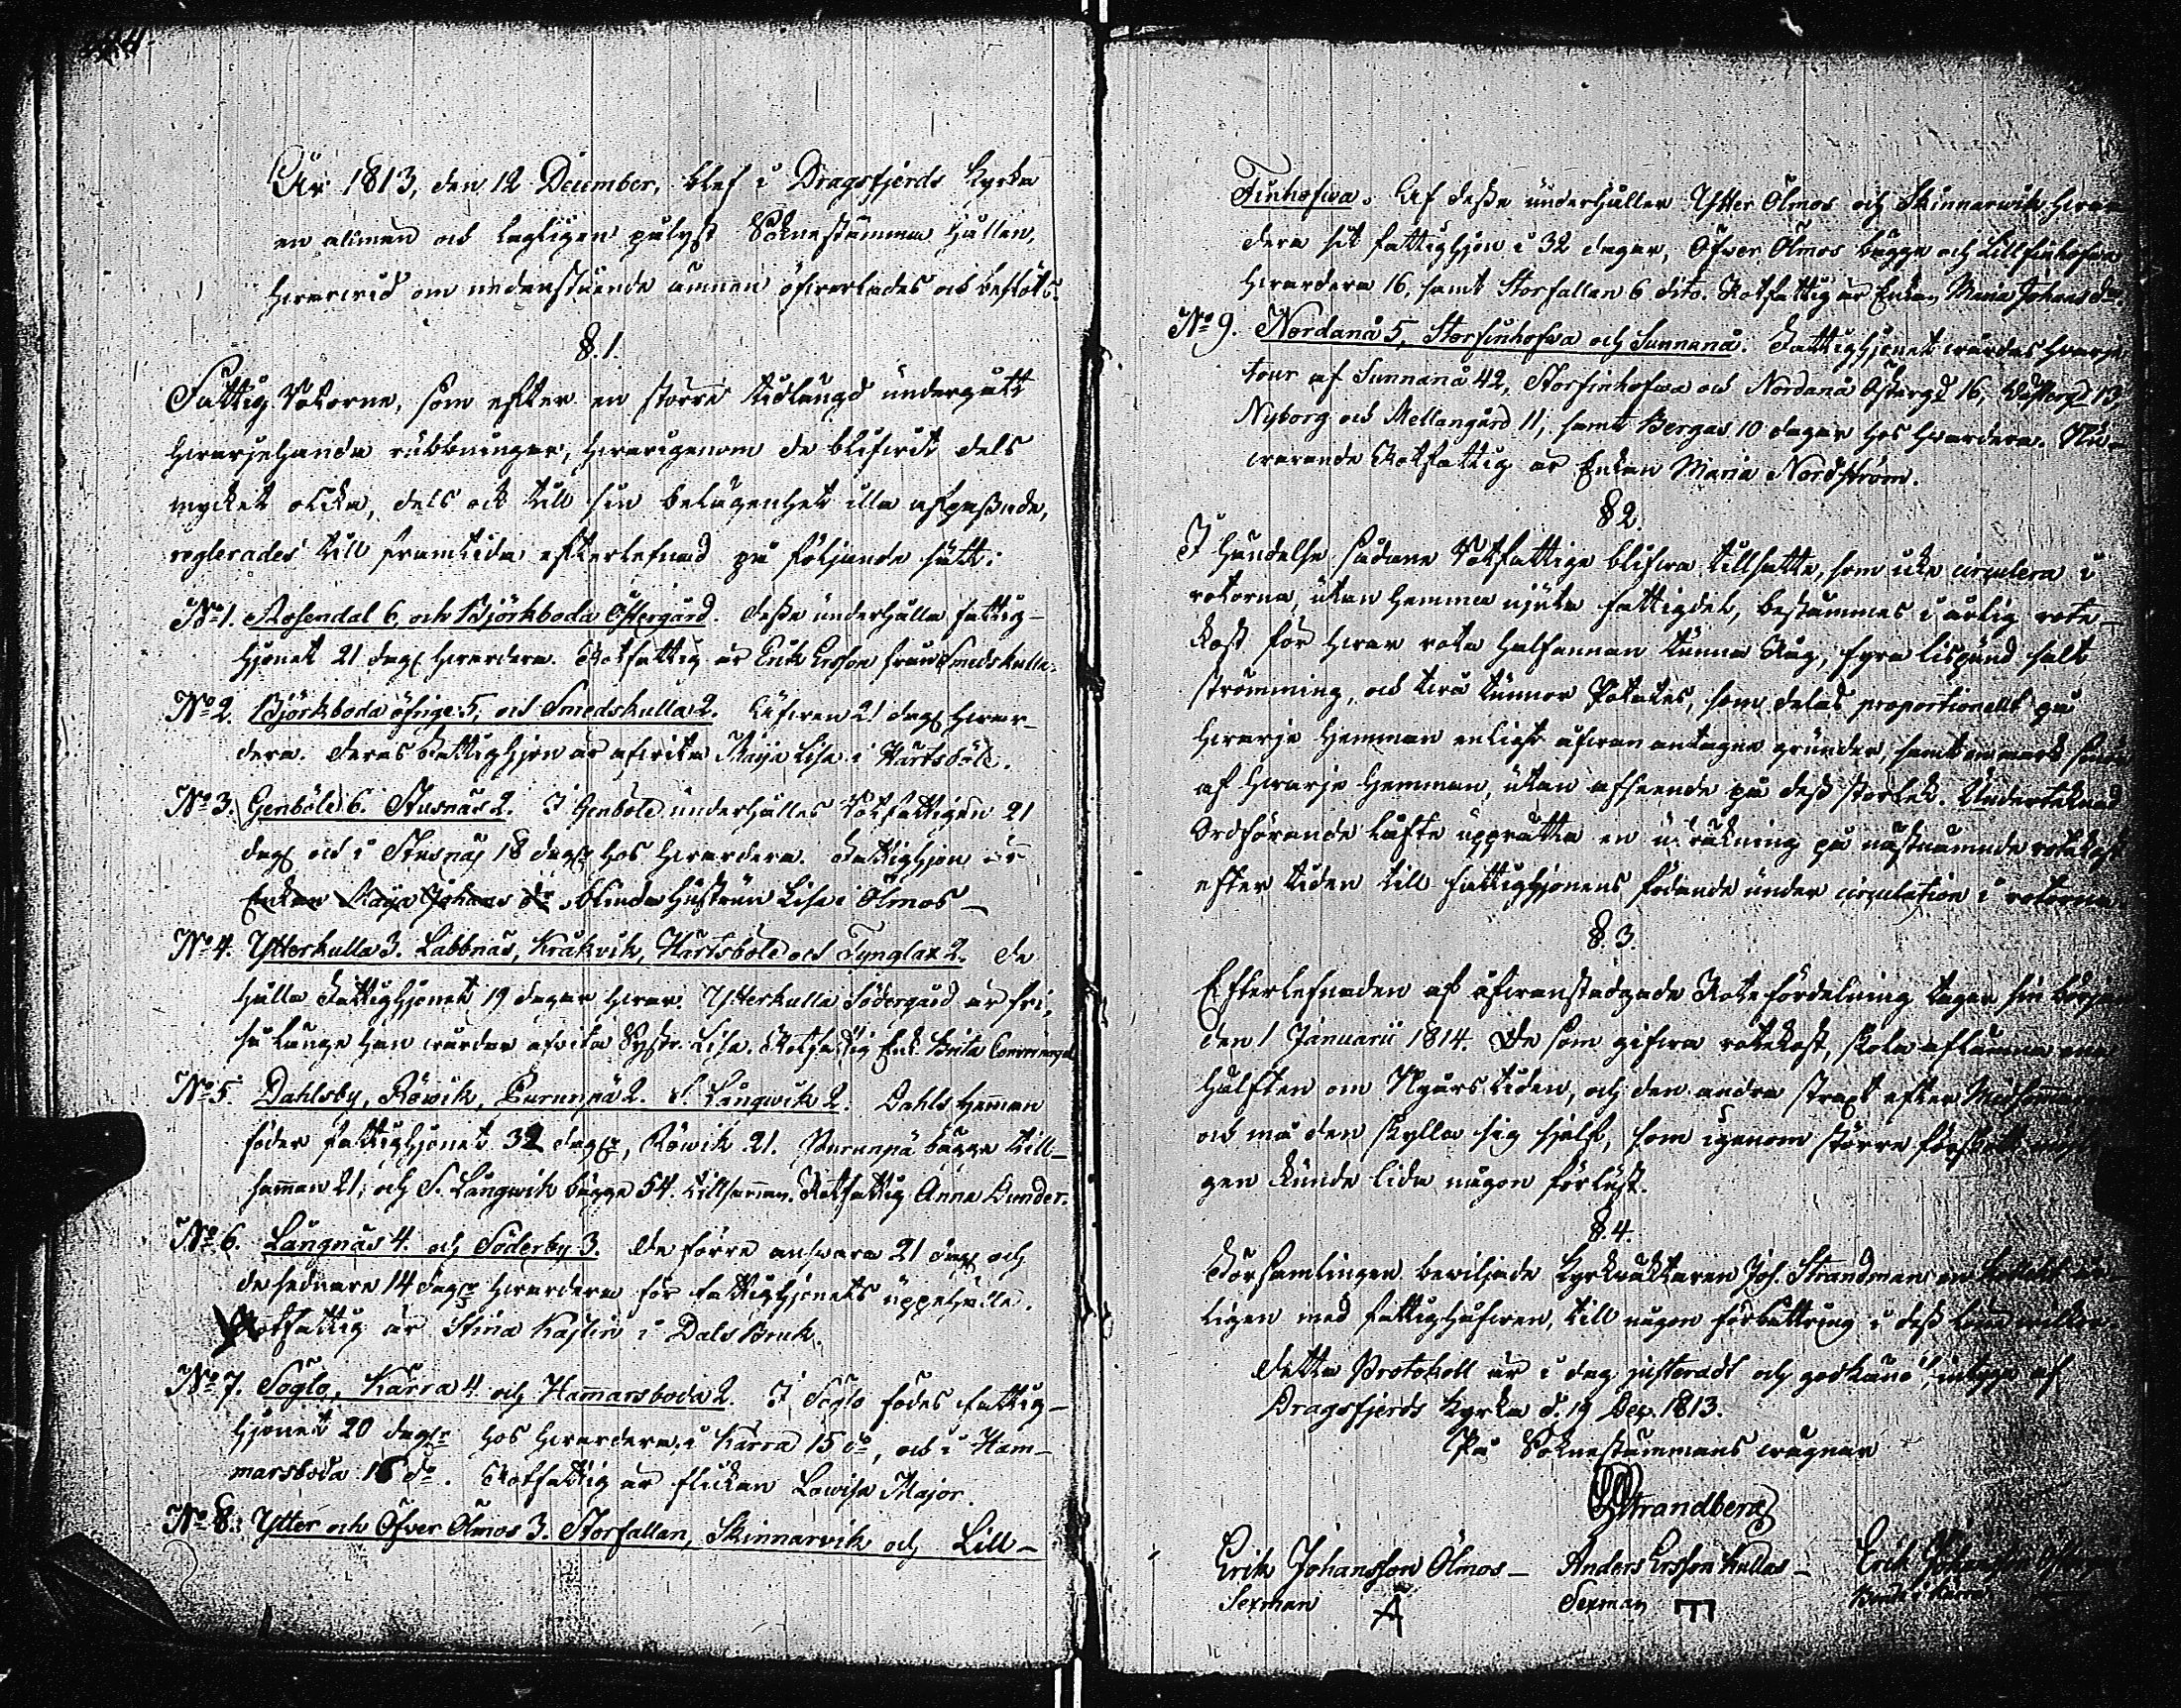 År 1813, den 12 December, blef i Dragsfjerds Kyrka
en allmen och lagligen pålyst Soknestämma hållen,
hvarvid om nedanstående ämnen öfverlades och beslöts.
§. 1.
Fattig Rotorne, som efter en större tidlängd undergått
hvarjehanda rubbningar, hvarigenom de blifvit dels
mycket olika, dels ock till sin belägenhet illa afpassade,
reglerades till framtida efterlefnad på följande sätt:
No 1. Rosendal 6 och Björkboda Östergård. Desse underhålla fattig-
hjonet 21 dagr hvardera. Rotfattig är Erik Ersson från Smedskulla.
No 2. Björkboda öfrige 5, och Smedskulla 2. Äfven 21 dagr hvar-
dera. Deras Fattighjon är afvita Maija Lisa i Hartsböle.
No 3. Genböle 6. Stusnäs 2. I Genböle underhålles Rotfattigen 21
dagr och i Stusnäs 18 dagr hos hvardera. Fattighjon är
Enkan Maja Johans dr blinda hustrun Lisa i Ölmos -
No 4. Ytterkulla 3. Labbnäs, Kråkvik, Hartsböle och Tynglax 2. De
hålla Fattighjonet 19 dagar hvar. Ytterkulla Södergård är fri,
så länge han vårdar afvita Syst. Lisa. Rotfattig Enk. Brita
No 5. Dahlsby, Röwik, Purunpä 2. S. Långwik 2. Dahls Hemman
föder fattighjonet 32 dagr, Röwik 21. Purunpä bägge till-
samman 21; och S. Långwik bägge 54 tillsamman. Rotfattig Anna Dunder.
No 6. Långnäs 4. och Söderby 3. De förre answara 21 dagr och
de sednare 14 dagr hvardera för fattighjonets uppehälle.
Rotfattig är Stina Kajlin i Dals Bruk.
No 7. Söglo, Kärra 4. och Hammarsboda 2. I Söglo födes fattig-
hjonet 20 dagr hos hvardera, i Kärra 15 do, och i Ham-
marsboda 16 do. Rotfattig är flickan Lowisa Major.
No 8. Ytter och Öfver Ölmos 3. Storfallan, Skinnarvik och Lill-
Finhofwa. Af desse underhåller Ytter Ölmos och Skinnarwik hvar-
dera sit fattighjon i 32 dagar, Öfver Ölmos bägge och Lillfinhofwa
hvardera 16, samt Storfallan 6 dito. Rotfattig är Enkan Maria Johansdr.
No 9. Nordanå 5, Storfinhofwa och Sunnanå. Fattighjonet wårdas hvarje
tour af Sunnanå 42, Storfinhofwa och Nordanå Östergd 16, Westergd 13
Nyborg och Mellangård 11, samt Bergas 10 dagar hos hvardera. Nu-
warande Rotfattig är Enkan Maria Nordström.
§ 2.
I händelse sådane Rotfattige blifva tillsatte, som icke circulera i
rotorna, utan hemma njuta fattigdel, bestämmes i årlig rote-
kost för hvar rota halfannan tunna Råg, fyra lispund salt
strömming, och två tunnor Potates, som delas proportionellt på
hvarje Hemman enligt äfvan antagna grunder, samt en mark
af hvarje Hemman, utan afseende på dess storlek. Undertecknad
Ordförande låfte upprätta en uträkning på nästnämnde rotekost
efter tiden till fattighjonens födande under circulation i rotorna.
§. 3.
Efterlefnaden af äfvanstadgade Rotefördelning tager sin början
den 1 Januarii 1814. De som gifva rotekost, skola aflämna ena
hälften om Nyårs tiden, och den andra straxt efter Midsommar
och må den skylla sig sjelf, som igenom större förskott
gen kunde lida någon förlust.
§. 4.
Församlingen beviljade Kyrkväktaren Joh. Strandman en Kollekt
ligen med fattighåfven, till någon förbättring i dess löne wilkor.
Detta Protokoll är i dag justeradt och godkänd, intyga af
Dragsfjerds Kyrka d. 19 Dec. 1813.
På Soknestämmans wägnar
Strandberg
Erik Johansson Ölmos - Anders Ersson Kullas - Erik
Sexman Sexman